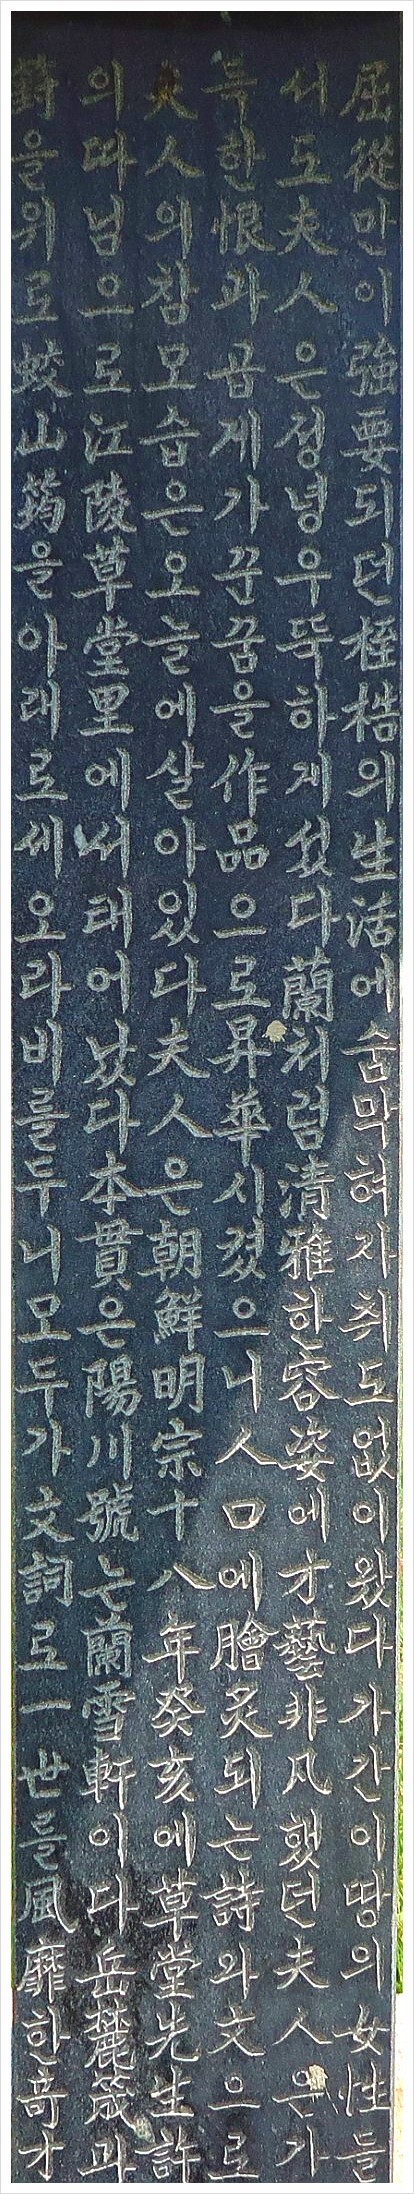 屈從만이强要되던桎梏의生活에숨막혀자취도없이왔다가간이땅의女性들
서도夫人은정녕우뚝하게섰다蘭처럼清雅한容姿에才藝非凡했던夫人은가
득한恨과곱게가꾼꿈을作品으로昇華시켰으니人口에膾炙되는詩와文으로
夫人의참모습은오늘에살아있다夫人은朝鮮明宗十八年癸亥에草堂先生許
의따님으로江陵草堂里에서태어났다本貫은陽川號는蘭雪軒이다岳麓筬과
篈을위로蛟山筠을아래로세오라비를두니모두가文詞로一世를風靡한奇才